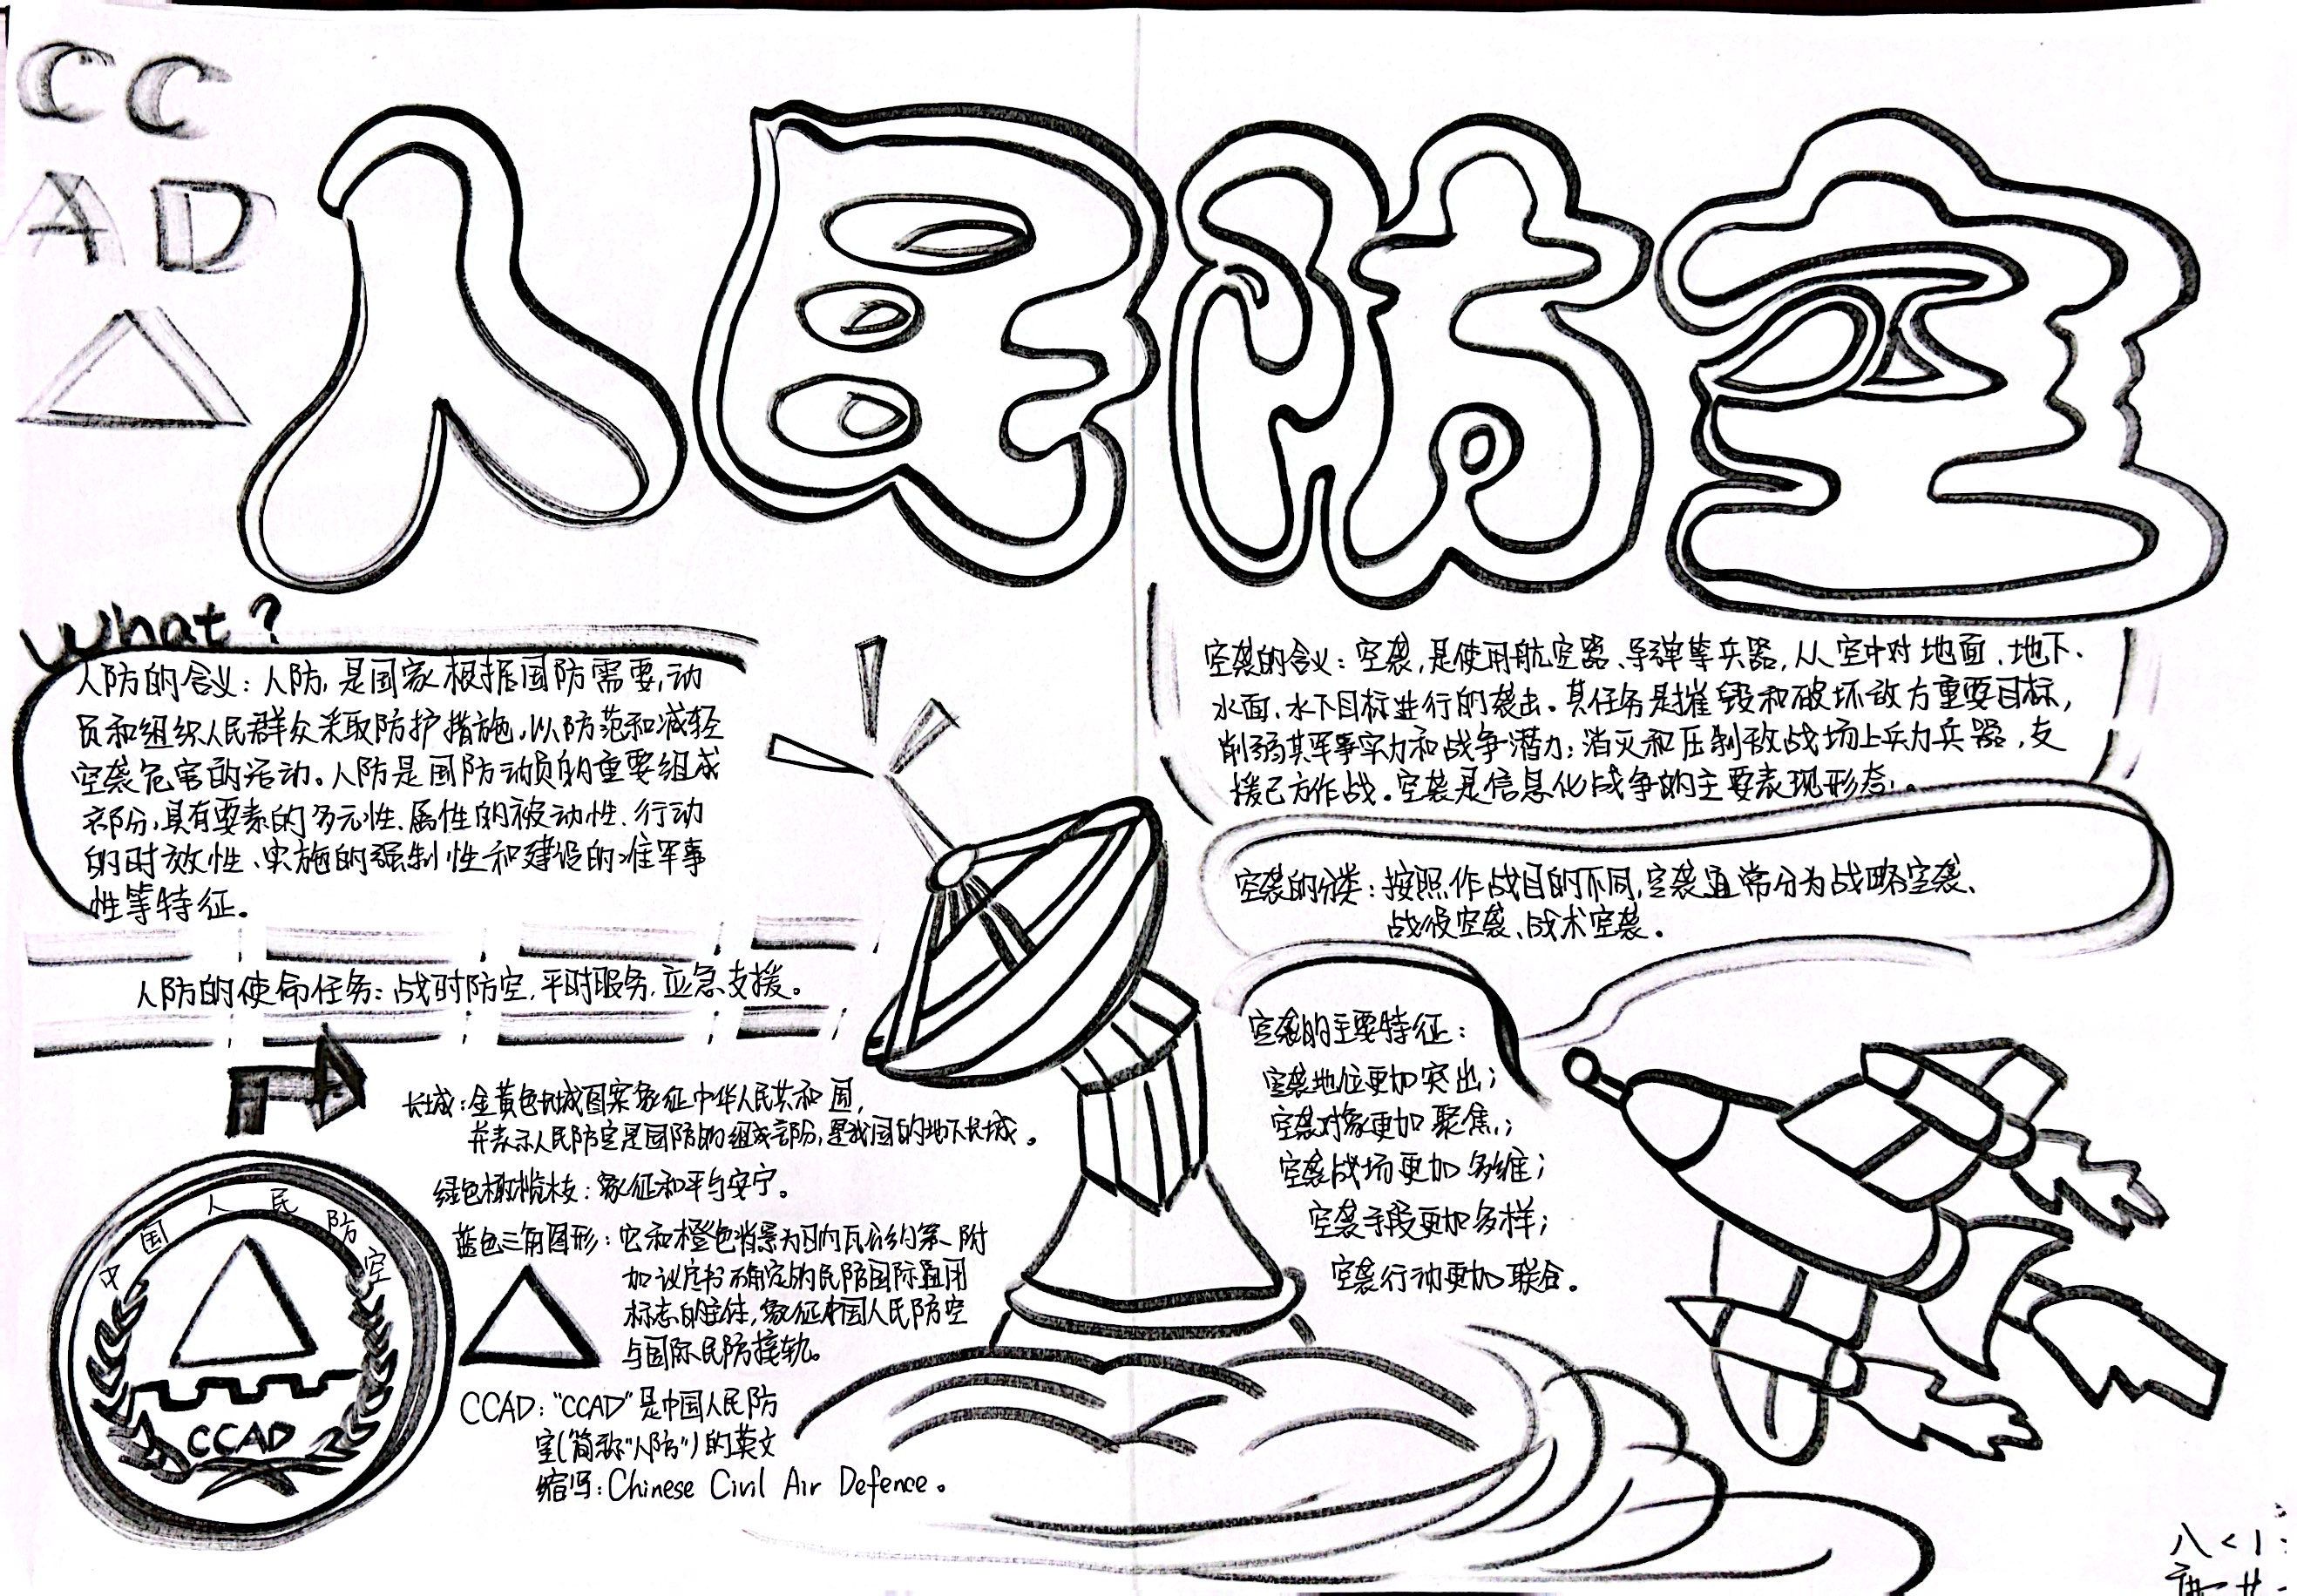 CC
AD
人民防空
What?
人防的含义：人防，是国家根据国防需要，动
员和组织人民群众采取防护措施，以防范和减轻
空袭危害的活动。人防是国防动员的重要组成
部分，具有要素的多元性、属性的被动性、行动
的时效性、实施的强制性和建设的准军事
性等特征。
人防的使命任务：战时防空，平时服务，应急支援。
长城：金黄色长城图案象征中华人民共和国，
并表示人民防空是国防的组成部分，是我国的地下长城。
绿色橄榄枝：象征和平与安宁。
蓝色三角图形：它和橙色背景为日内瓦公约第一附
加议定书确定的民防国际通用
标志的主体，象征中国人民防空
与国际民防接轨。
CCAD："CCAD"是中国人民防
空（简称"人防"）的英文
缩写：Chinese Civil Air Defence。
中国人民防空
CCAD
空袭的含义：空袭，是使用航空器、导弹等兵器，从空中对地面、地下、
水面、水下目标进行的袭击。其任务是摧毁和破坏敌方重要目标，
削弱其军事实力和战争潜力；消灭和压制敌战场上兵力兵器，支
援己方作战。空袭是信息化战争的主要表现形态。
空袭的分类：按照作战目的不同，空袭通常分为战略空袭、
战役空袭、战术空袭。
空袭的主要特征：
空袭地位更加突出；
空袭对象更加聚焦；
空袭战场更加多维；
空袭手段更加多样；
空袭行动更加联合。